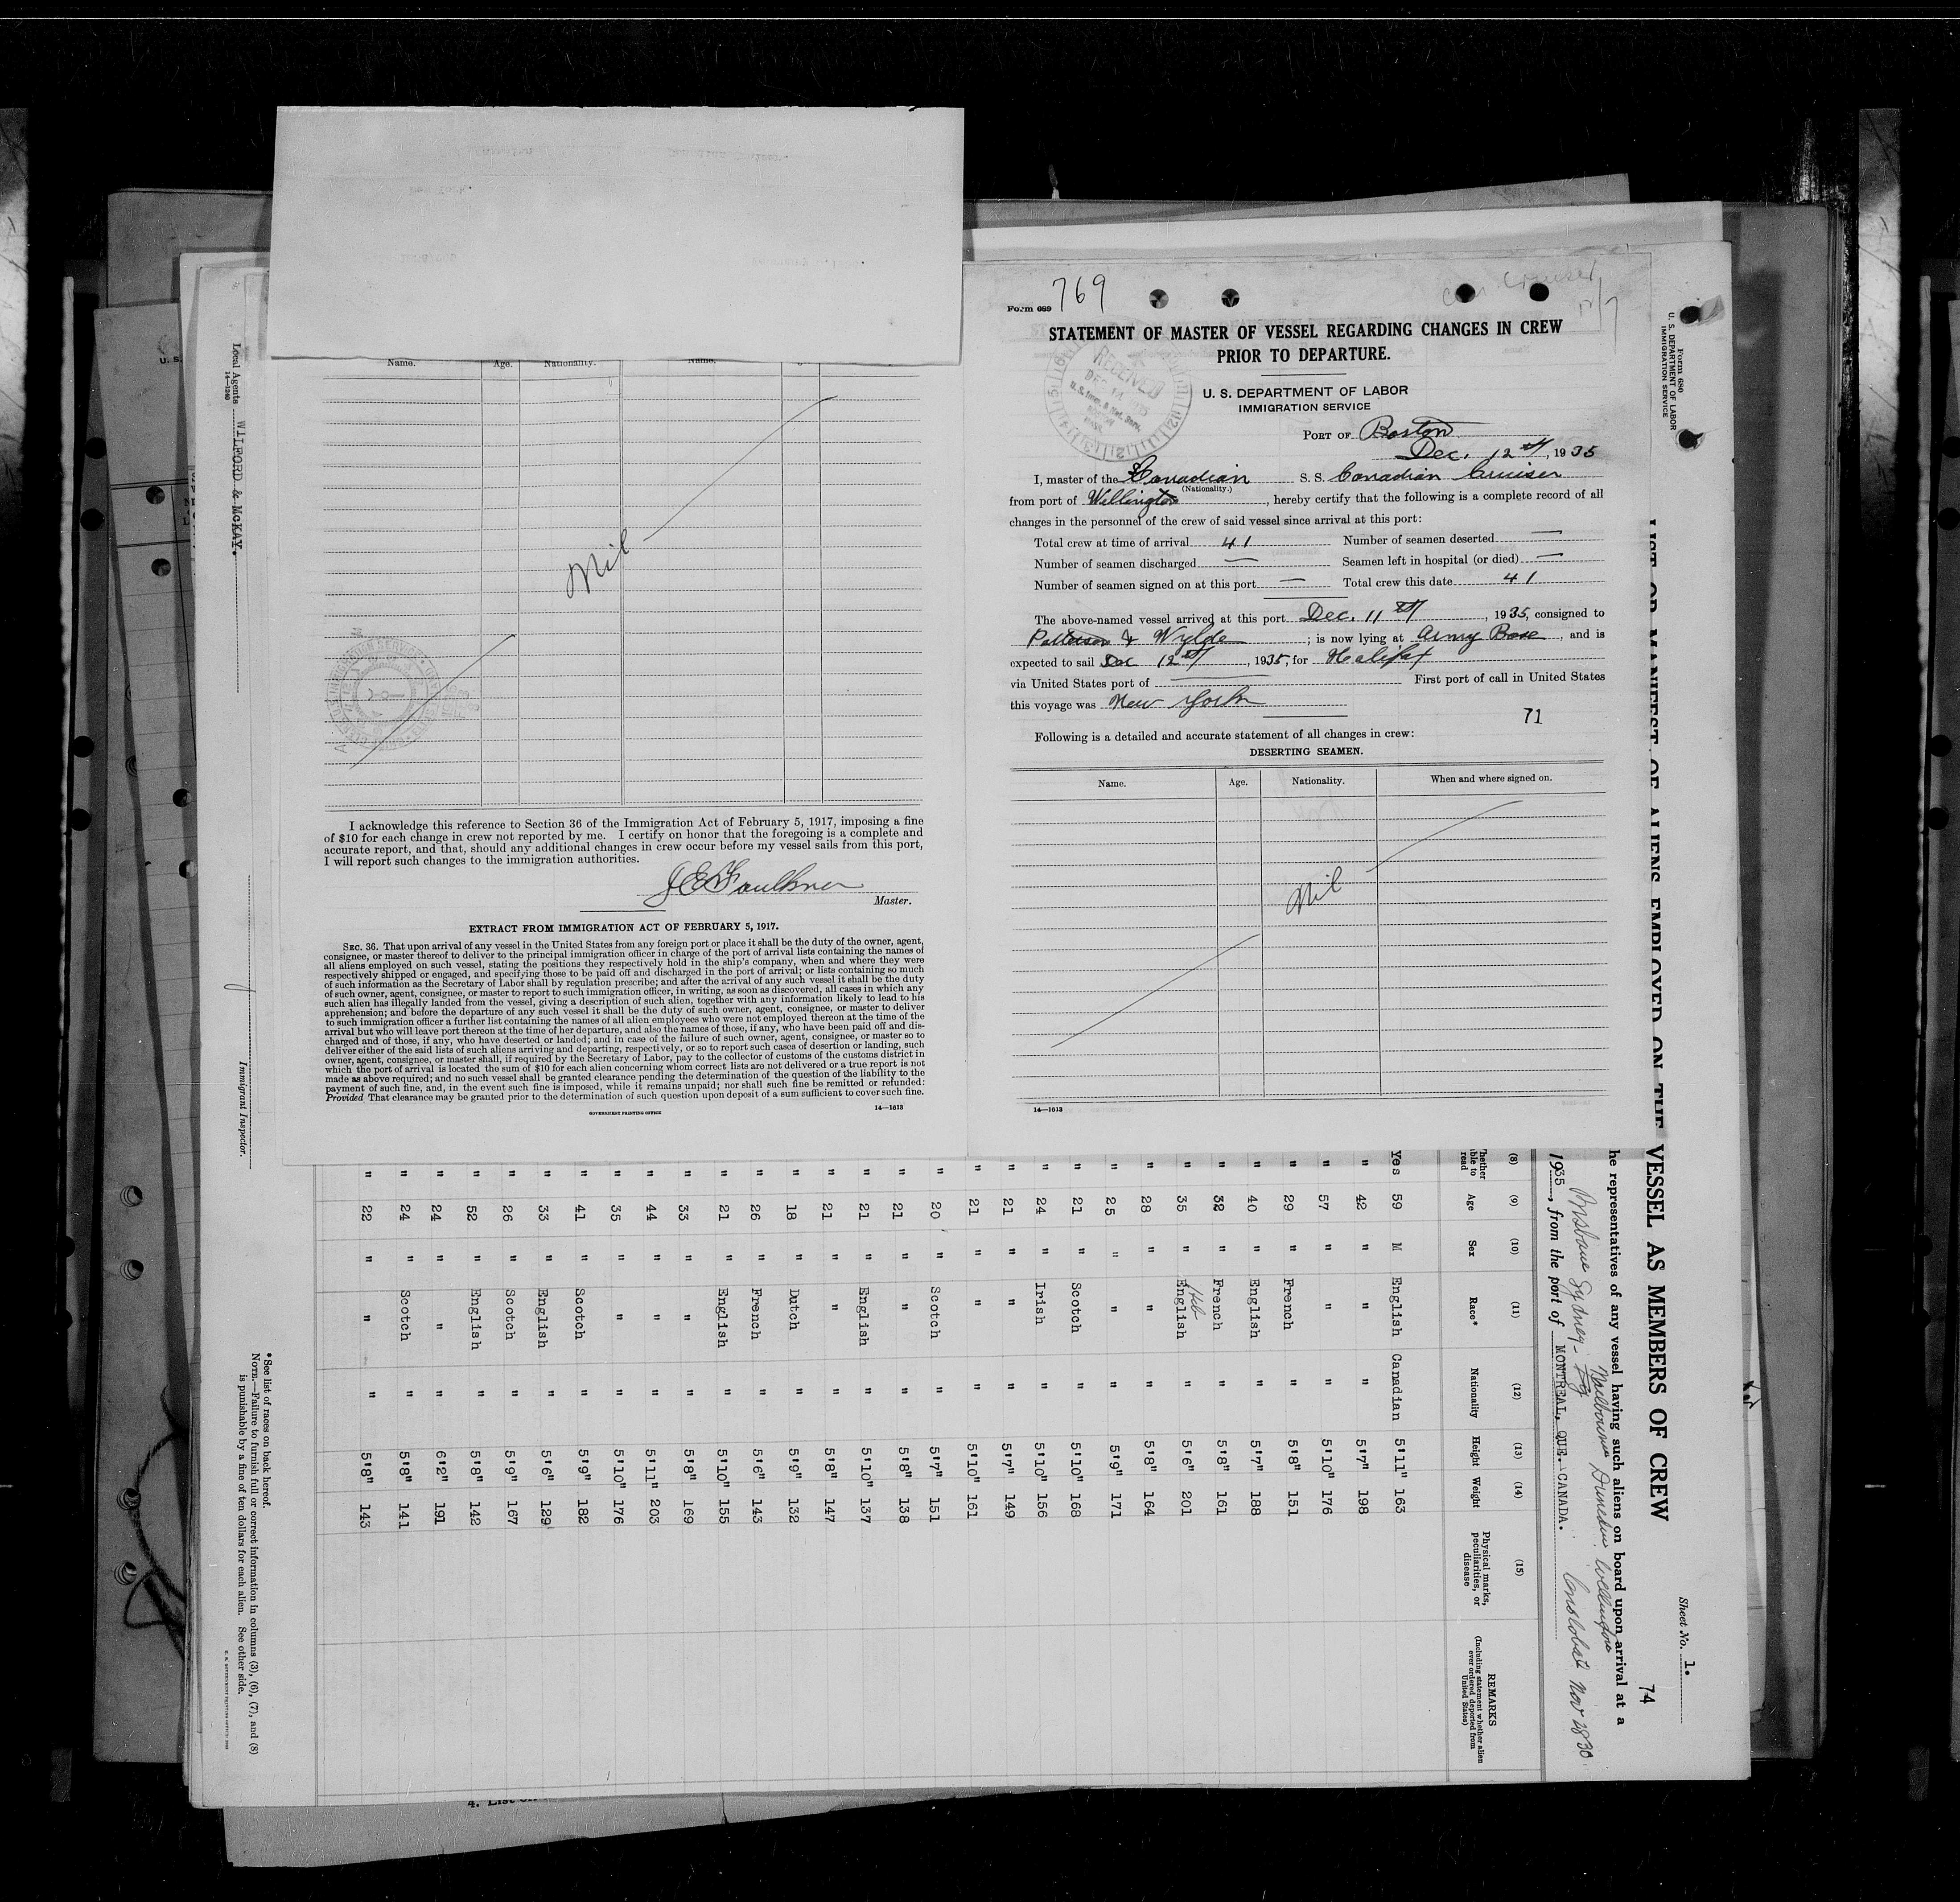 Name. Age. Nationality. Name.
Nil
I acknowledge this reference to Section 36 of the Immigration Act of February 5, 1917, imposing a fine
of $10 for each change in crew not reported by me. I certify on honor that the foregoing is a complete and
accurate report, and that, should any additional changes in crew occur before my vessel sails from this port,
I will report such changes to the immigration authorities.
J E Faulkner
Master.
EXTRACT FROM IMMIGRATION ACT OF FEBRUARY 5, 1917.
SEC. 36. That upon arrival of any vessel in the United States from any foreign port or place it shall be the duty of the owner, agent,
consignee, or master thereof to deliver to the principal immigration officer in charge of the port of arrival lists containing the names of
all aliens employed on such vessel, stating the positions they respectively hold in the ship's company, when and where they were
respectively shipped or engaged, and specifying those to be paid off and discharged in the port of arrival; or lists containing so much
of such information as the Secretary of Labor shall by regulation prescribe; and after the arrival of any such vessel it shall be the duty
of such owner, agent, consignee, or master to report to such immigration officer, in writing, as soon as discovered, all cases in which any
such alien has illegally landed from the vessel, giving a description of such alien, together with any information likely to lead to his
apprehension; and before the departure of any such vessel it shall be the duty of such owner, agent, consignee, or master to deliver
to such immigration officer a further list containing the names of all alien employees who were not employed thereon at the time of the
arrival but who will leave port thereon at the time of her departure, and also the names of those, if any, who have been paid off and dis-
charged and of those, if any, who have deserted or landed; and in case of the failure of such owner, agent, consignee, or master so to
deliver either of the said lists of such aliens arriving and departing, respectively, or so to report such cases of desertion or landing, such
owner, agent, consignee, or master shall, if required by the Secretary of Labor, pay to the collector of customs of the customs district in
which the port of arrival is located the sum of $10 for each alien concerning whom correct lists are not delivered or a true report is not
made as above required; and no such vessel shall be granted clearance pending the determination of the question of the liability to the
payment of such fine, and, in the event such fine is imposed, while it remains unpaid; nor shall such fine be remitted or refunded:
Provided That clearance may be granted prior to the determination of such question upon deposit of a sum sufficient to cover such fine.
GOVERNMENT PRINTING OFFICE 14—1613
Form 689 769
STATEMENT OF MASTER OF VESSEL REGARDING CHANGES IN CREW
PRIOR TO DEPARTURE.
RECEIVED
U. S. DEPARTMENT OF LABOR
IMMIGRATION SERVICE
PORT OF Boston
Dec. 12th, 1935
I, master of the Canadian S. S. Canadian Cruiser
(Nationality.)
from port of Wellington, hereby certify that the following is a complete record of all
changes in the personnel of the crew of said vessel since arrival at this port:
Total crew at time of arrival 41 Number of seamen deserted —
Number of seamen discharged — Seamen left in hospital (or died) —
Number of seamen signed on at this port — Total crew this date 41
The above-named vessel arrived at this port Dec. 11th, 1935, consigned to
Patterson & Wylde; is now lying at Army Base, and is
expected to sail Dec 12th, 1935, for Halifax
via United States port of — First port of call in United States
this voyage was New York
71
Following is a detailed and accurate statement of all changes in crew:
DESERTING SEAMEN.
Name. Age. Nationality. When and where signed on.
Nil
14—1613
Form 680
U. S. DEPARTMENT OF LABOR
IMMIGRATION SERVICE
Sheet No. 1.
74
LIST OR MANIFEST OF ALIENS EMPLOYED ON THE VESSEL AS MEMBERS OF CREW
he representatives of any vessel having such aliens on board upon arrival at a
Melbourne Dunedin Wellington
Brisbane Sydney
Nov 28 30
1935, from the port of MONTREAL, QUE. CANADA.
(8) (9) (10) (11) (12) (13) (14) (15)
Age Sex Race* Nationality Height Weight Physical marks, peculiarities, or disease REMARKS
(Including statement whether alien ever ordered deported from United States)
Yes 59 M English Canadian 5'11" 163
" 42 " " " 5'7" 198
" 57 " " " 5'10" 176
" 29 " French " 5'8" 151
" 40 " English " 5'7" 188
" 32 " French " 5'8" 161
" 35 " English Heb " 5'6" 201
" 28 " " " 5'8" 164
" 25 " " " 5'9" 171
" 21 " Scotch " 5'10" 168
" 24 " Irish " 5'10" 156
" 21 " " " 5'7" 149
" 21 " " " 5'10" 161
" 20 " Scotch " 5'7" 151
" 21 " " " 5'8" 138
" 21 " English " 5'10" 137
" 21 " " " 5'8" 147
" 18 " Dutch " 5'9" 132
" 26 " French " 5'6" 143
" 21 " English " 5'10" 155
" 33 " " " 5'8" 169
" 44 " " " 5'11" 203
" 35 " " " 5'10" 176
" 41 " Scotch " 5'9" 182
" 33 " English " 5'6" 129
" 26 " Scotch " 5'9" 167
" 52 " English " 5'8" 142
" 24 " " " 6'2" 191
" 24 " Scotch " 5'8" 141
" 22 " " " 5'8" 143
* See list of races on back hereof.
NOTE.—Failure to furnish full or correct information in columns (3), (6), (7), and (8)
is punishable by a fine of ten dollars for each alien. See other side.
Local Agents WILFORD & McKAY.
14—1240
Immigrant Inspector.